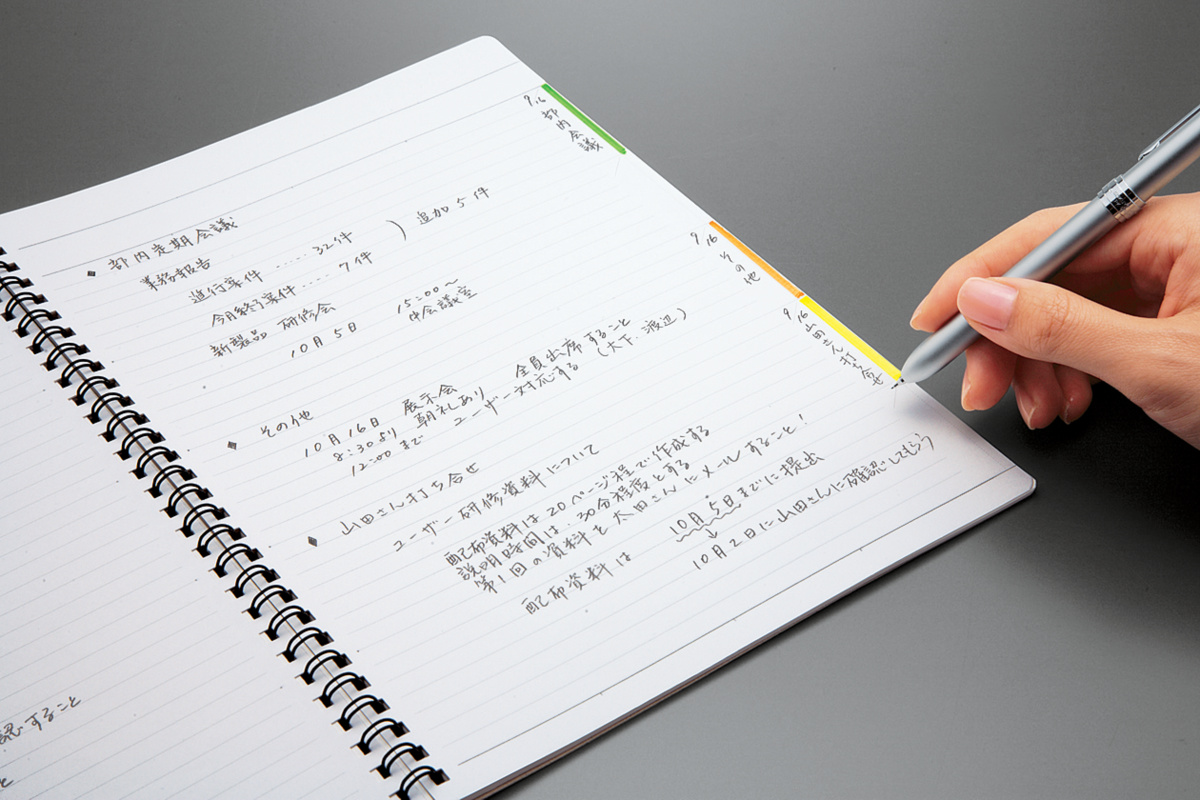 ◆ 部内定期会議
業務報告
進行案件 ‥‥‥ 32件 ) 追加5件
今月終了案件 ‥‥ 7件
新製品 研修会
10月5日 15:00〜
中会議室
◆ その他
10月16日 展示会
8:30より 朝礼あり 全員出席すること
12:00まで ユーザー対応する (大下、渡辺)
◆ 山田さん打ち合せ
ユーザー研修資料について
配布資料は20ページ程で作成する
説明時間は、30分程度とする
第1回の資料を太田さんにメールすること!
配布資料は 10月5日までに提出
↓
10月2日に山田さんに確認してもらう
9/16 部内会議
9/16 その他
9/16 山田さん打ち合せ
認すること
と